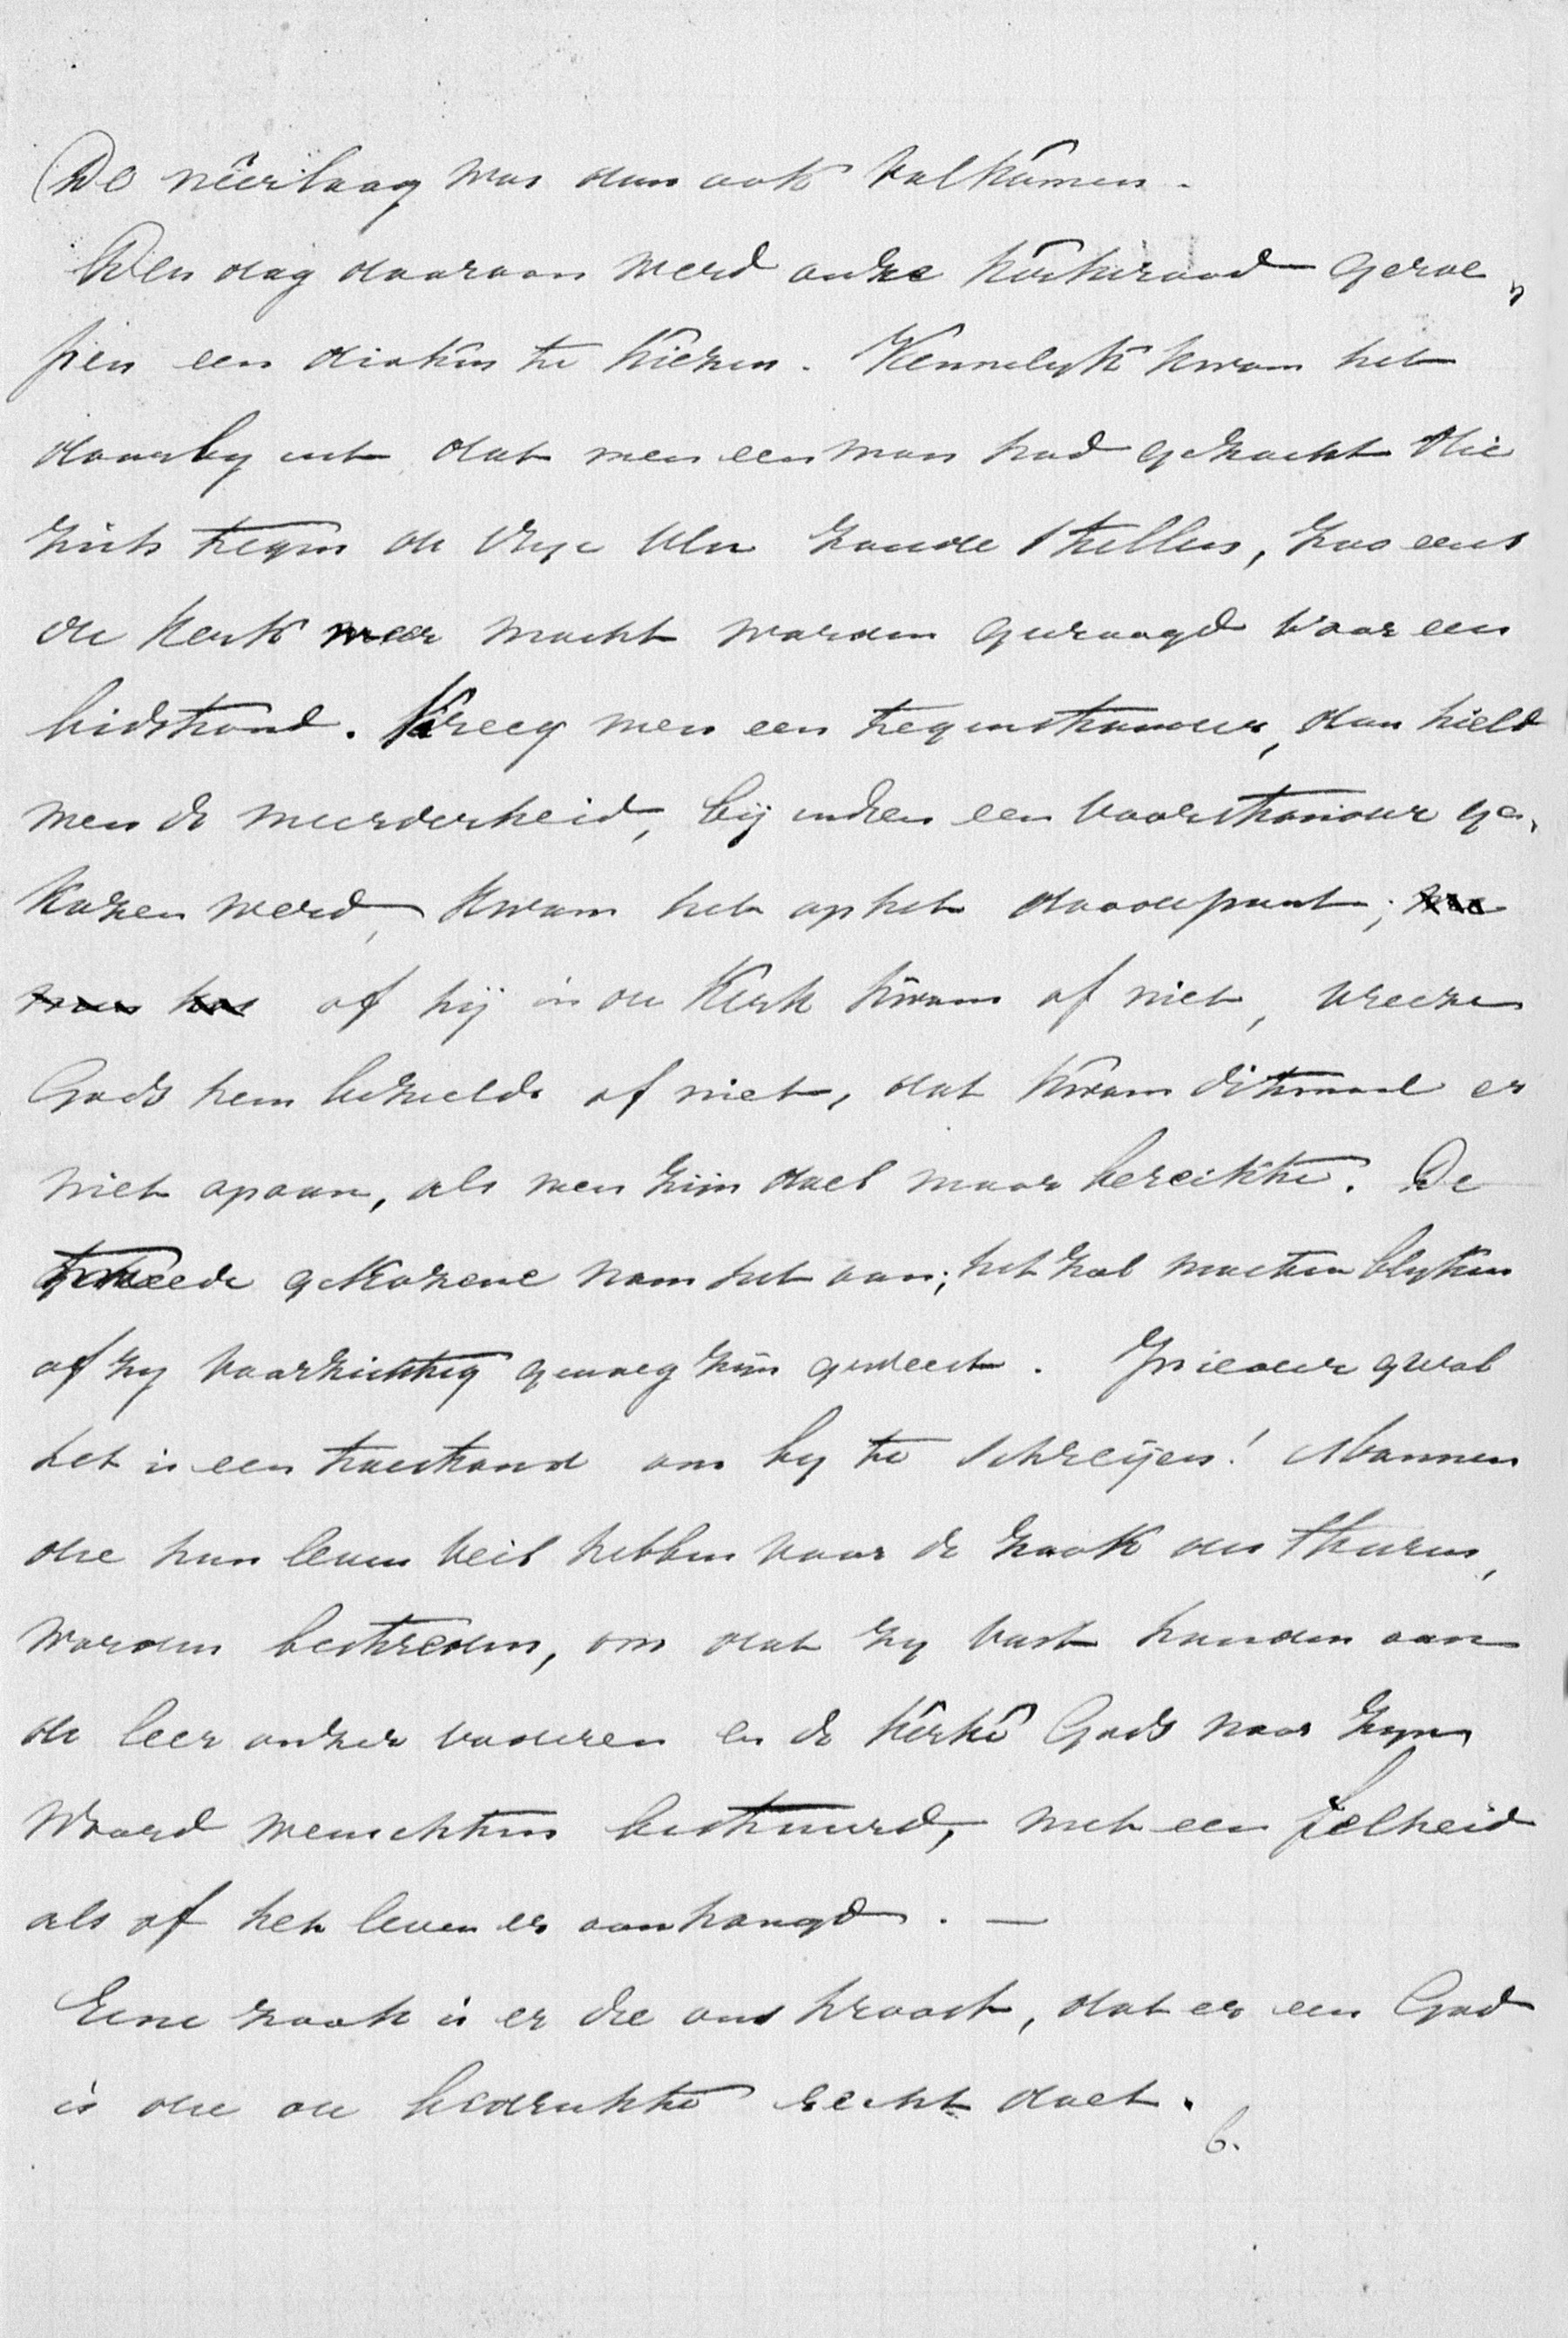 De neêrlaag was dan ook volkomen.
Den dag daaraan werd onze kerkeraad geroe„
pen een diaken te kiezen. Kennelyk kwam het
daarby uit dat men een man had gezocht die
zich tegen de Vrye Un zoude stellen, zoo eens
de kerk weer mocht worden gevraagd voor een
bidstond. Kreeg men een tegenstander, dan hield
men de meerderheid, bijindien een voorstander ge„
kozen werd, kwam het op het doodepunt;
of hij in de Kerk kwam of niet, vreeze
Gods hem bezielde of niet, dat kwam ditmaal er
niet opaan, als men zijn doel maar bereikte. De
tweede gekozene nam het aan; het zal moeten blyken
of zy voorzichtig genoeg zijn geweest. In ieder geval
het is een toestand om by te schreijen! Mannen
die hun leven veil hebben voor de zaak des Heeren,
worden bestreden, om dat zy vast houden aan
de leer onzer vaderen en de kerke Gods naar Zyn
Woord wenschten bestuurd, met een felheid
als of het leven er aan hangd. —
Eene zaak is er die ons troost, dat er een God
is die de bedrukte recht doet.
b.